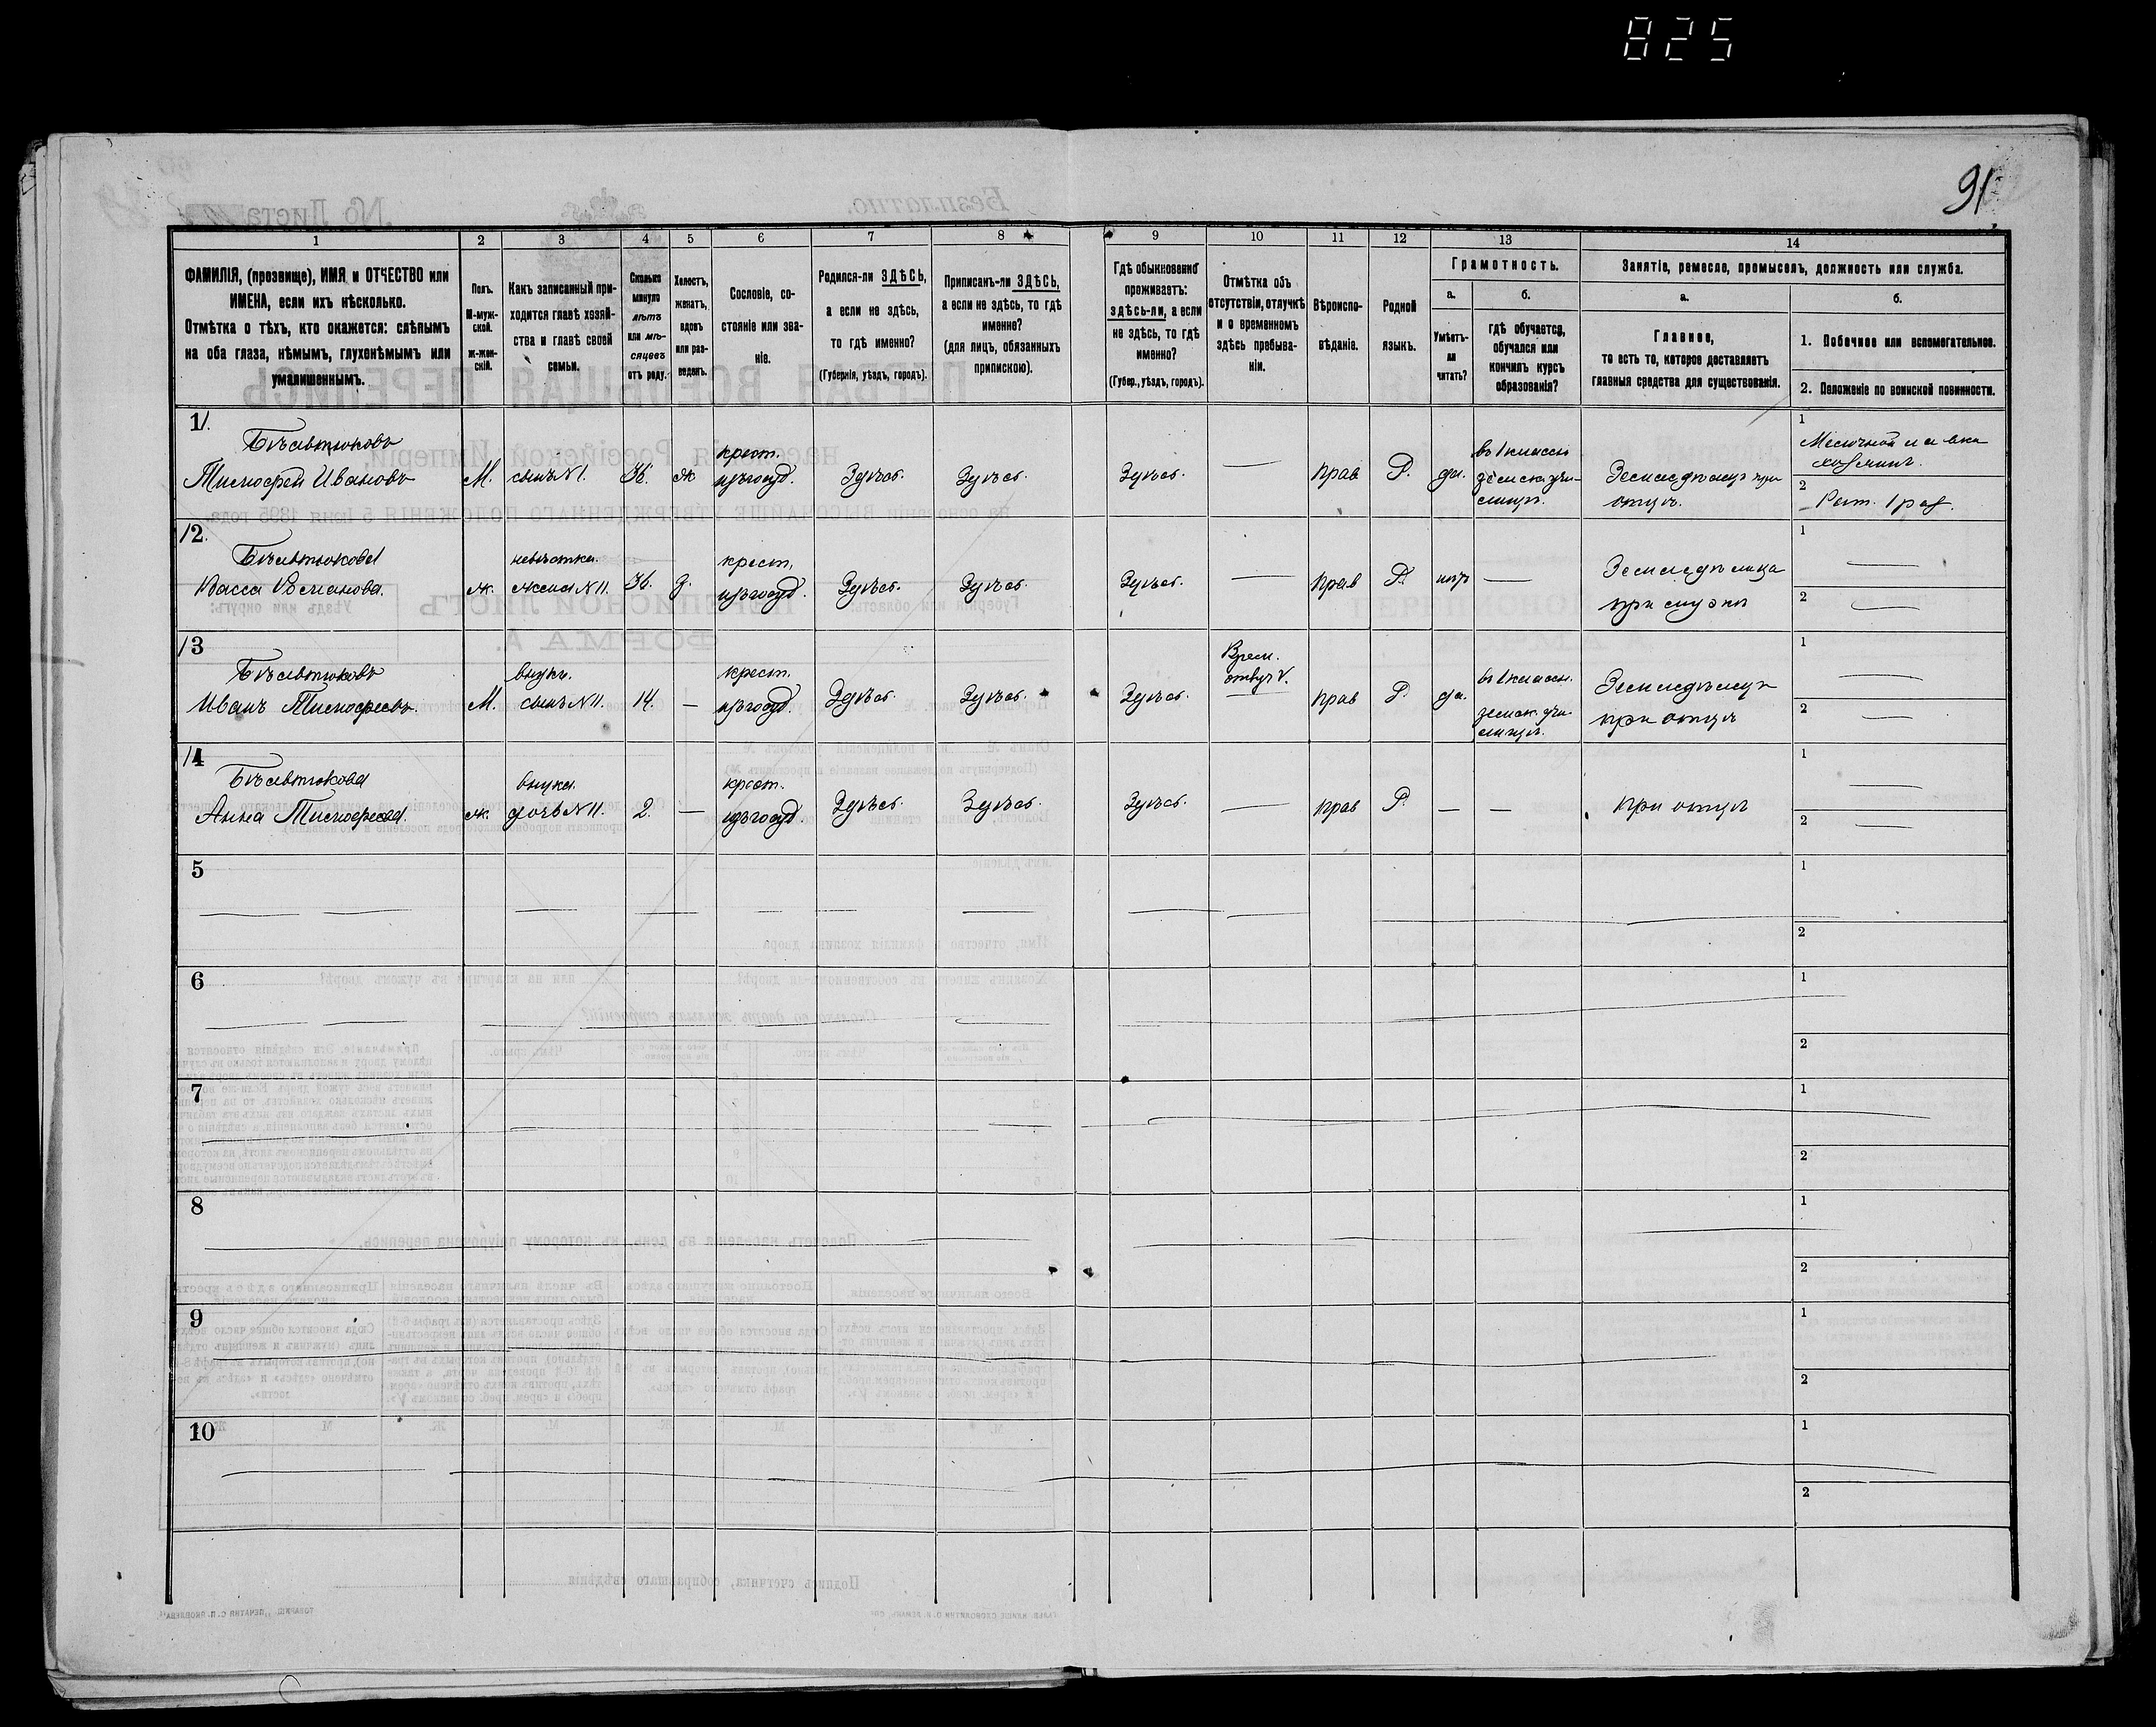 825
91
1
2
3
4
5
6
7
8
9
10
11
12
13
14
ФАМИЛІЯ, (прозвище), ИМЯ и ОТЧЕСТВО или
ИМЕНА, если ихъ нѣсколько.
Отмѣтка о тѣхъ, кто окажется: слѣпымъ
на оба глаза, нѣмымъ, глухонѣмымъ или
умалишеннымъ.
Полъ.
М-муж-
ской.
ж-жен-
скій.
Какъ записанный при-
ходится главѣ хозяй-
ства и главѣ своей
семьи.
Сколько
минуло
лѣтъ
или мѣ-
сяцевъ
отъ роду.
Холостъ,
женатъ,
вдовъ
или раз-
веденъ.
Сословіе, со-
стояніе или зва-
ніе.
Родился-ли ЗДѢСЬ,
а если не здѣсь,
то гдѣ именно?
(Губернія, уѣздъ, городъ).
Приписанъ-ли ЗДѢСЬ,
а если не здѣсь, то гдѣ
именно?
(для лицъ, обязанныхъ
припискою).
Гдѣ обыкновенно
проживаетъ:
здѣсь-ли, а если
не здѣсь, то гдѣ
именно?
(Губер., уѣздъ, городъ).
Отмѣтка объ
отсутствіи, отлучкѣ
и о временномъ
здѣсь пребыва-
ніи.
Вѣроиспо-
вѣданіе.
Родной
языкъ.
Грамотность.
а.
Умѣетъ-
ли
читать?
б.
гдѣ обучается,
обучался или
кончилъ курсъ
образованія?
Занятіе, ремесло, промыселъ, должность или служба.
а.
Главное,
то есть то, которое доставляетъ
главныя средства для существованія.
б.
1. Побочное или вспомогательное.
2. Положеніе по воинской повинности.
11.
Тимофей Ивановъ
М.
сынъ N1.
36.
ж
крест.
изъ госуд.
Здѣсь.
Здѣсь.
Здѣсь.
Прав
Р.
да.
въ 1 классн
земск. учи-
лищѣ.
Земледѣлецъ при
отцѣ.
1
2
Рат. 1 раз.
12.
Васса Романова.
ж.
невѣстка.
жена N11.
36.
з.
крест.
изъ госуд.
Здѣсь.
Здѣсь.
Здѣсь.
Прав
Р.
нѣтъ
Земледѣлица
при мужѣ
1
2
13
Иванъ Тимофеевъ.
М.
внукъ.
сынъ N11.
14.
крест.
изъ госуд.
Здѣсь.
Здѣсь.
Здѣсь.
Врем.
отлуч V.
Прав
Р.
да.
въ 1 классн.
земск. учи-
лищѣ.
Земледѣлецъ
при отцѣ
1
2
14
Анна Тимофеева.
ж.
внучка.
дочь N11.
2.
крест.
изъ госуд.
Здѣсь.
Здѣсь.
Здѣсь.
Прав
Р.
при отцѣ
1
2
5
1
2
6
1
2
7
1
2
8
1
2
9
1
2
10
1
2